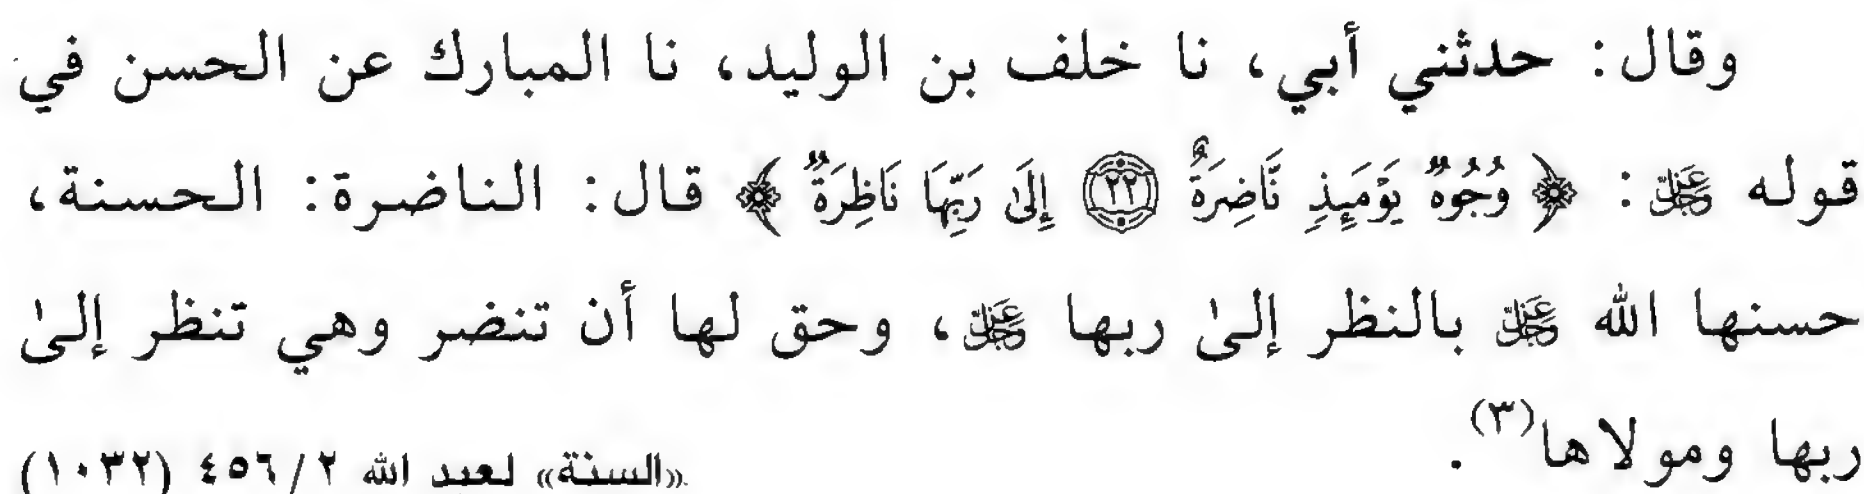 وقال: حدثني أبي، نا خلف بن الوليد، نا المبارك عن الحسن في
قوله عَزَّ وَجَلَّ: ﴿ وُجُوهٌ يَوْمَئِذٍ نَّاضِرَةٌ ٢٢ إِلَىٰ رَبِّهَا نَاظِرَةٌ ﴾ قال: الناضرة: الحسنة،
حسنها الله عَزَّ وَجَلَّ بالنظر إلىٰ ربها عَزَّ وَجَلَّ، وحق لها أن تنضر وهي تنظر إلىٰ
ربها ومولاها(٣).
«السنة» لعبد الله ٢/ ٤٥٦ (١٠٣٢)